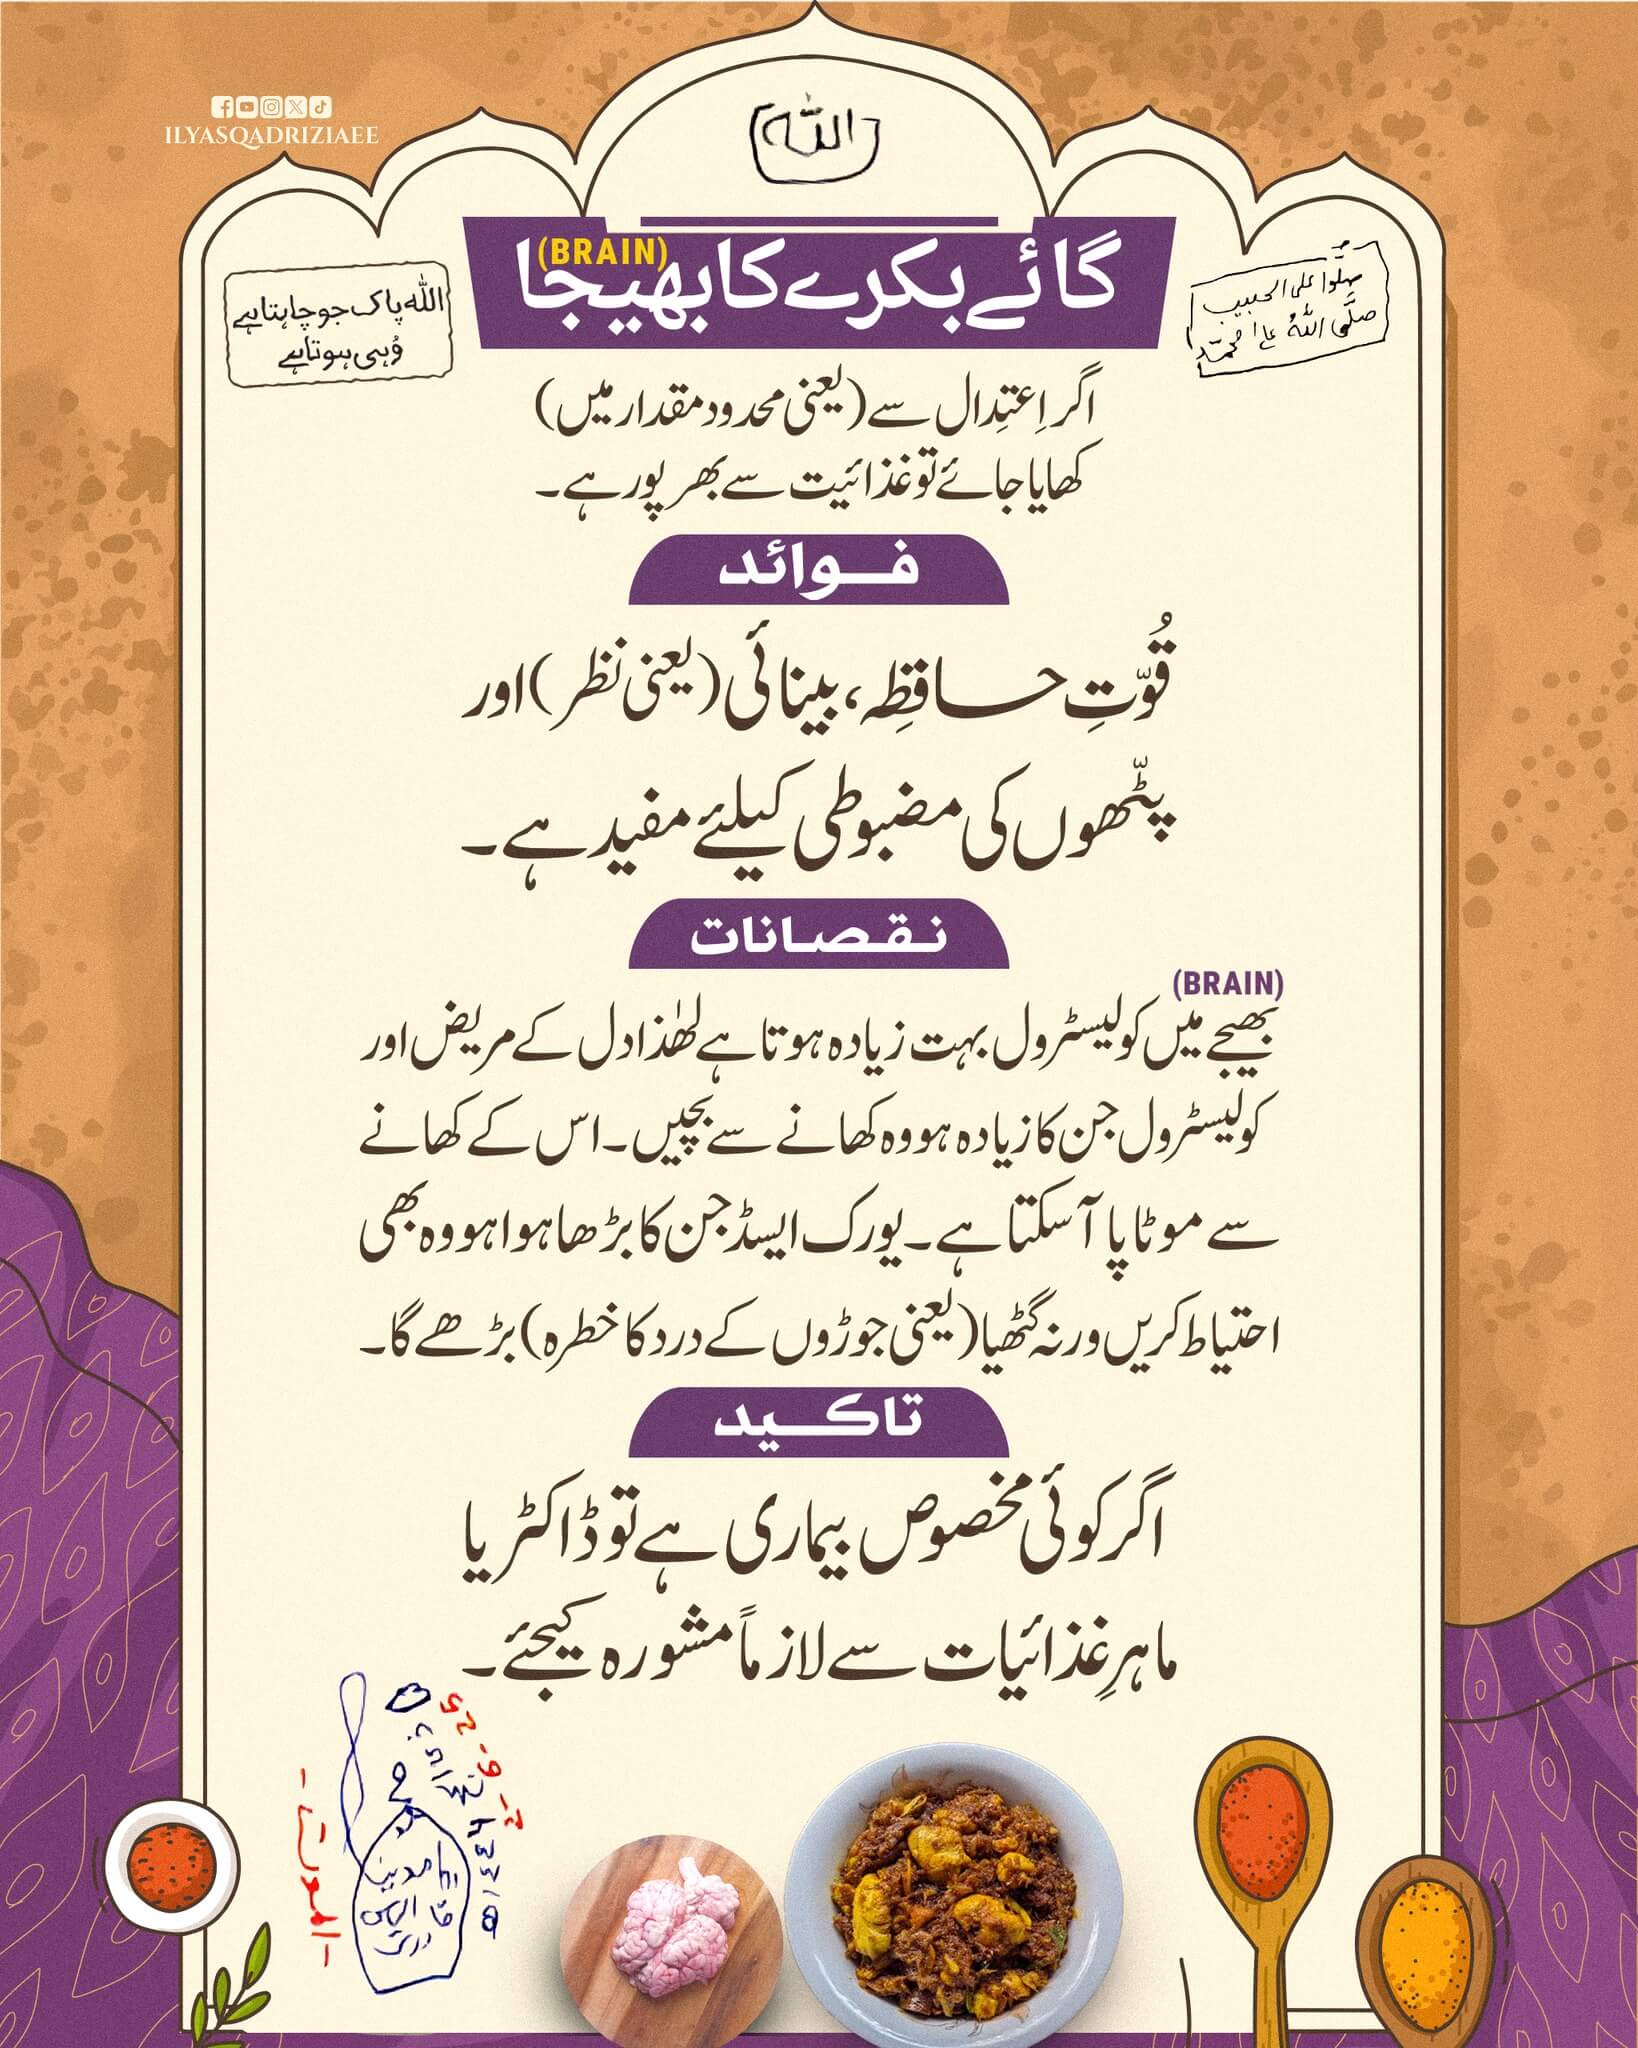 ILYASQADRIZIAEE
الله
صلُّوا علی الحبیب
صلَّی اللّٰهُ علٰی محمّد
اللّٰہ پاک جو چاہتا ہے
وُہی ہوتا ہے
گائے بکرے کا بھیجا (BRAIN)
اگر اِعتِدال سے (یعنی محدود مقدار میں)
کھایا جائے تو غذائیت سے بھرپور ہے۔
فوائد
قُوّتِ حافِظہ، بینائی (یعنی نظر) اور
پٹّھوں کی مضبوطی کیلئے مفید ہے۔
نقصانات
(BRAIN)
بھیجے میں کولیسٹرول بہت زیادہ ہوتا ہے لھٰذا دل کے مریض اور
کولیسٹرول جن کا زیادہ ہو وہ کھانے سے بچیں۔ اس کے کھانے
سے موٹاپا آسکتا ہے۔ یورک ایسڈ جن کا بڑھا ہوا ہو وہ بھی
احتیاط کریں ورنہ گٹھیا (یعنی جوڑوں کے درد کا خطرہ) بڑھے گا۔
تاکید
اگر کوئی مخصوص بیماری ہے تو ڈاکٹر یا
ماہرِ غذائیات سے لازماً مشورہ کیجئے۔
الموت